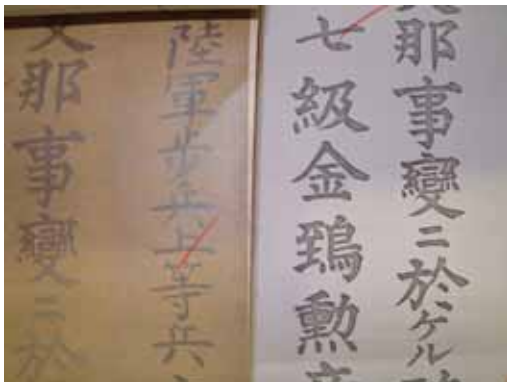 支那事變ニ於ケル
七級金鵄勲章
陸軍歩兵上等兵
支那事變ニ於